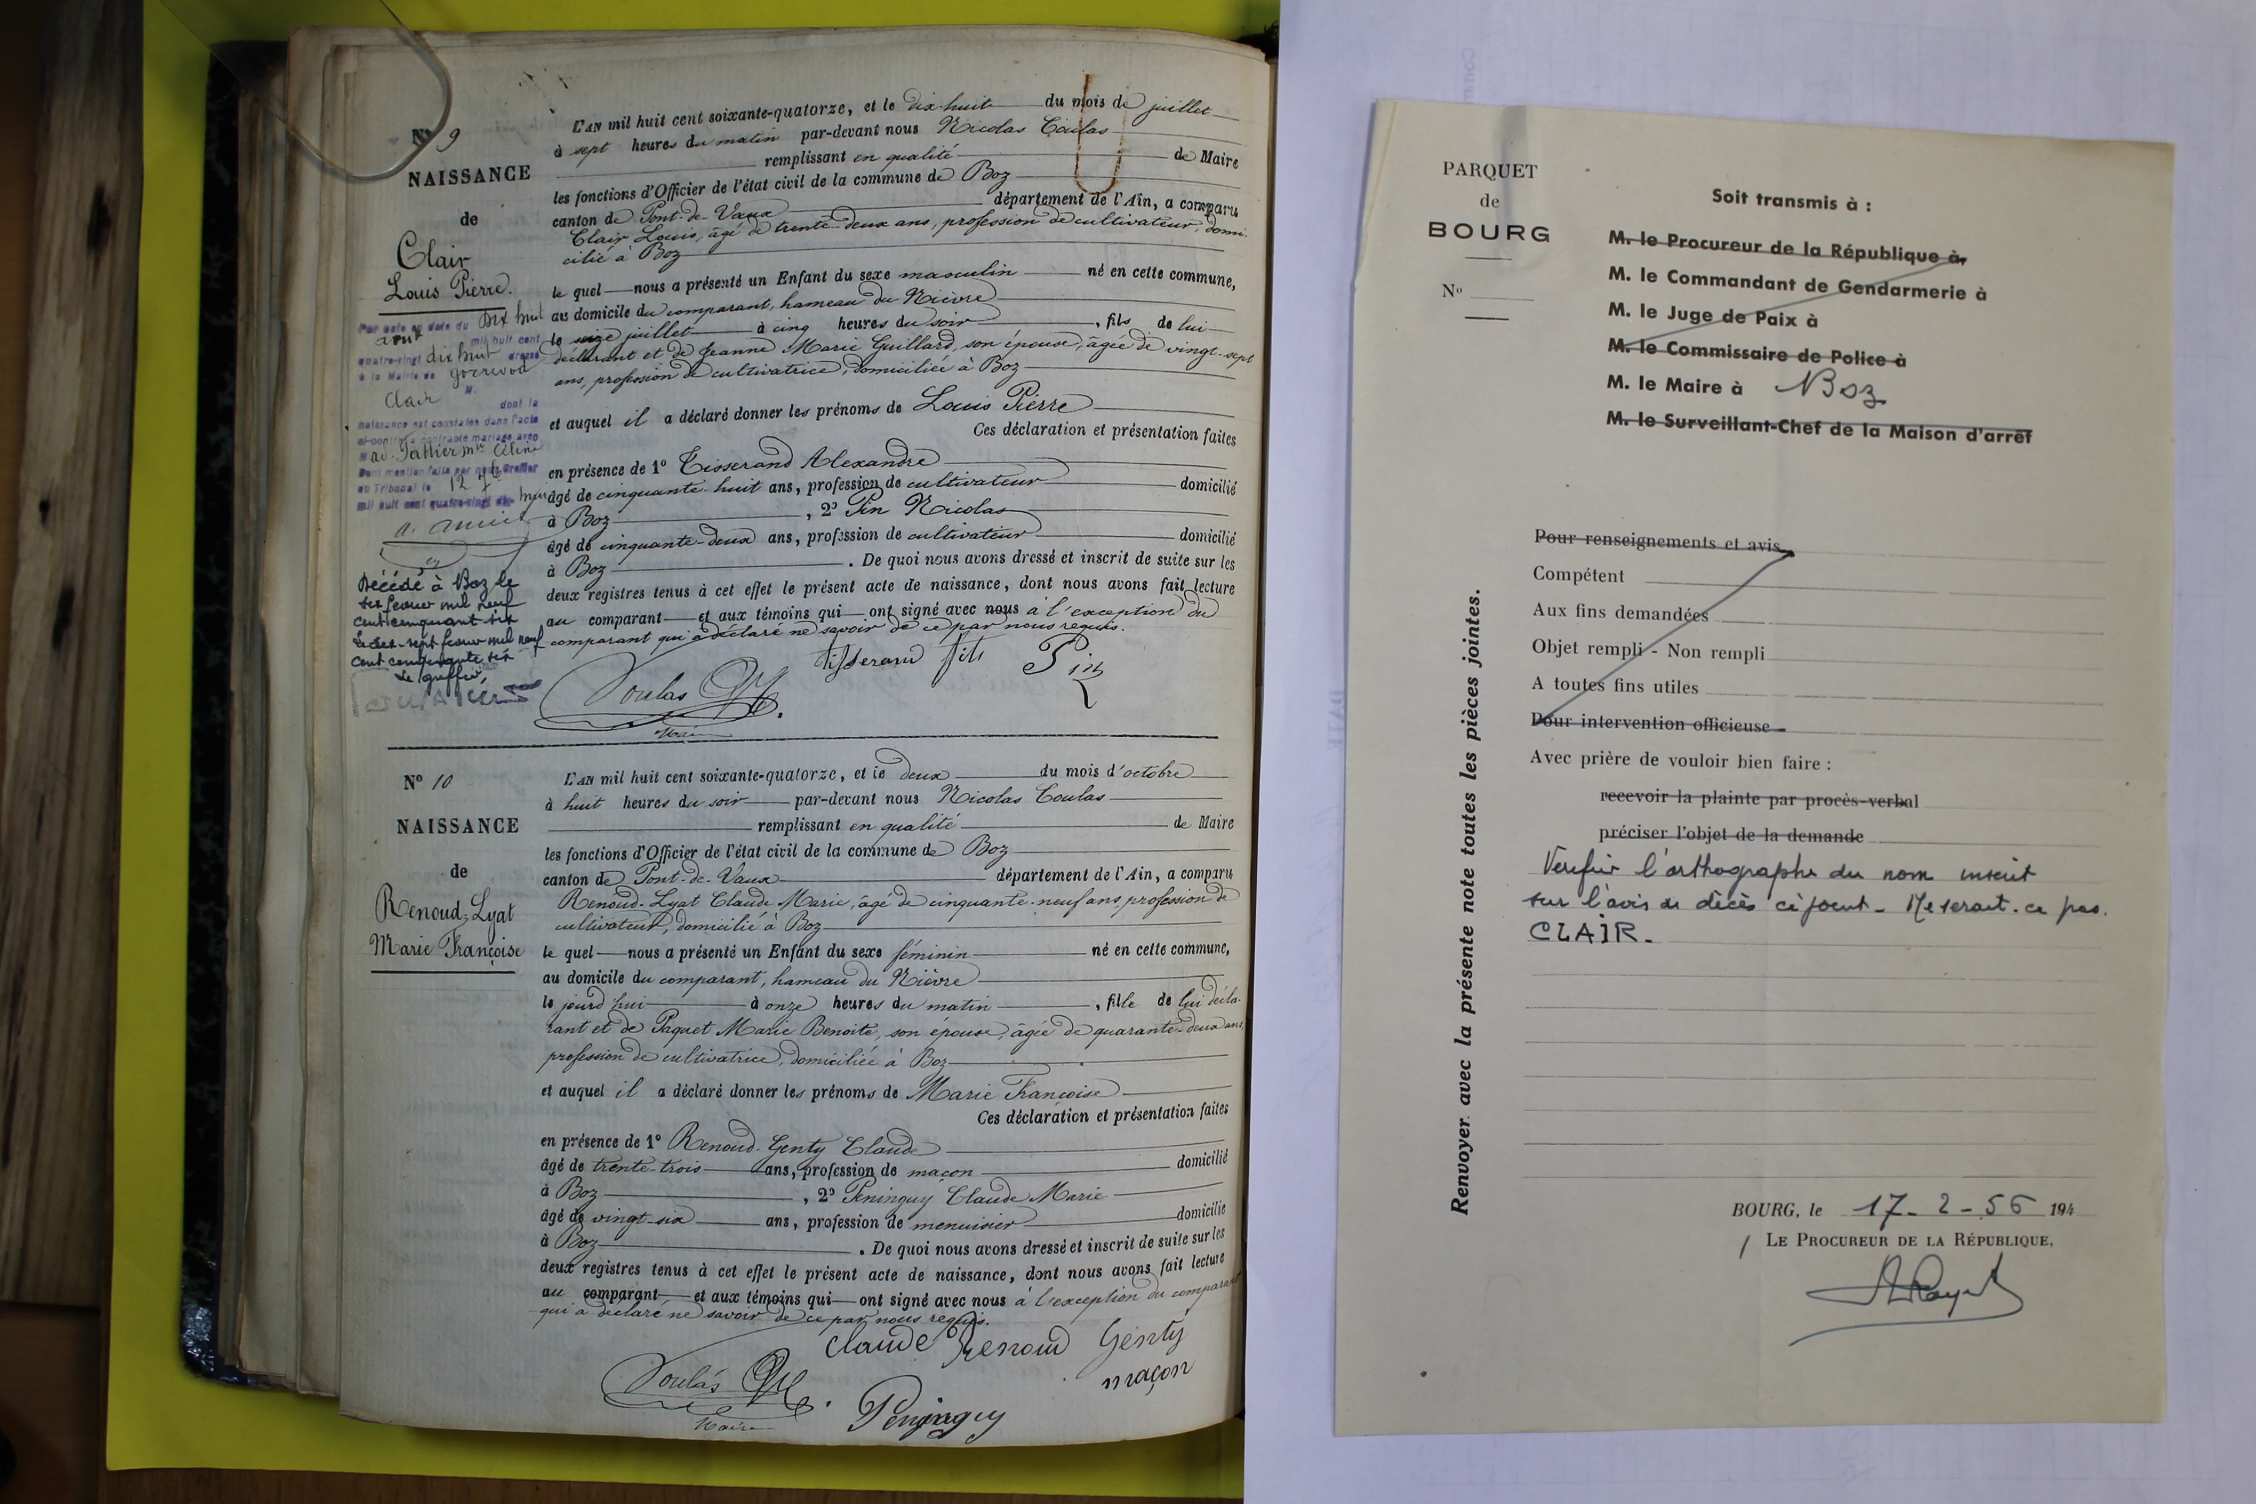 N° 9
NAISSANCE
de
Clair
Louis Pierre.
L'AN mil huit cent soixante-quatorze, et le dix-huit du mois de juillet
à sept heures du matin par-devant nous Nicolas Coulas
remplissant en qualité de Maire
les fonctions d'Officier de l'état civil de la commune de Boz
canton de Pont-de-Vaux département de l'Ain, a comparu
Clair Louis, âgé de trente-deux ans, profession de cultivateur, domi-
cilié à Boz
le quel nous a présenté un Enfant du sexe masculin né en cette commune,
au domicile du comparant, hameau du Nièvre
le seize juillet à cinq heures du soir, fils de lui
déclarant et de Jeanne Marie Guillard, son épouse, âgée de vingt-sept
ans, profession de cultivatrice, domiciliée à Boz
et auquel il a déclaré donner les prénoms de Louis Pierre
Ces déclaration et présentation faites
en présence de 1° Tisserand Alexandre
âgé de cinquante-huit ans, profession de cultivateur domicilié
à Boz, 2° Pin Nicolas
âgé de cinquante-deux ans, profession de cultivateur domicilié
à Boz. De quoi nous avons dressé et inscrit de suite sur les
deux registres tenus à cet effet le présent acte de naissance, dont nous avons fait lecture
au comparant et aux témoins qui ont signé avec nous à l'exception du
comparant qui a déclaré ne savoir de ce par nous requis.
Tisserand fils Pin
Coulas
Maire
Par acte en date du Dix huit
aout mil huit cent
quatre-vingt dix huit dressé
à la Mairie de Gorrevod
M. Clair
dont la
naissance est constatée dans l'acte
ci-contre a contracté mariage avec
Céline
Dont mention faite par nous Greffier
du Tribunal le 12
mil huit cent quatre-vingt dix huit
Décédé à Boz le
six fevrier mil neuf
cent cinquante six
Le dix-sept fevrier mil neuf
cent cinquante six
Le greffier,
N° 10
NAISSANCE
de
Renoud-Lyat
Marie Françoise
L'AN mil huit cent soixante-quatorze, et le deux du mois d'octobre
à huit heures du soir par-devant nous Nicolas Coulas
remplissant en qualité de Maire
les fonctions d'Officier de l'état civil de la commune de Boz
canton de Pont-de-Vaux département de l'Ain, a comparu
Renoud-Lyat Claude Marie, âgé de cinquante-neuf ans, profession de
cultivateur, domicilié à Boz
le quel nous a présenté un Enfant du sexe féminin né en cette commune,
au domicile du comparant, hameau du Nièvre
le jourd'hui à onze heures du matin, fille de lui décla-
rant et de Paquet Marie Benoite, son épouse, âgée de quarante-deux ans,
profession de cultivatrice, domiciliée à Boz
et auquel il a déclaré donner les prénoms de Marie Françoise
Ces déclaration et présentation faites
en présence de 1° Renoud-Genty Claude
âgé de trente-trois ans, profession de maçon domicilié
à Boz, 2° Peninguy Claude Marie
âgé de vingt-six ans, profession de menuisier domicilié
à Boz. De quoi nous avons dressé et inscrit de suite sur les
deux registres tenus à cet effet le présent acte de naissance, dont nous avons fait lecture
au comparant et aux témoins qui ont signé avec nous à l'exception du comparant
qui a déclaré ne savoir de ce par nous requis.
Claude Renoud Genty
maçon
Coulas
Maire
Peninguy
PARQUET
de
BOURG
N°
Soit transmis à :
M. le Procureur de la République à
M. le Commandant de Gendarmerie à
M. le Juge de Paix à
M. le Commissaire de Police à
M. le Maire à Boz
M. le Surveillant-Chef de la Maison d'arrêt
Renvoyer avec la présente note toutes les pièces jointes.
Pour renseignements et avis
Compétent
Aux fins demandées
Objet rempli - Non rempli
A toutes fins utiles
Pour intervention officieuse
Avec prière de vouloir bien faire :
recevoir la plainte par procès-verbal
préciser l'objet de la demande
Verifier l'orthographe du nom inscrit
sur l'avis de décès ci joint - Ne serait-ce pas
CLAIR -
BOURG, le 17-2-56 194
LE PROCUREUR DE LA RÉPUBLIQUE,